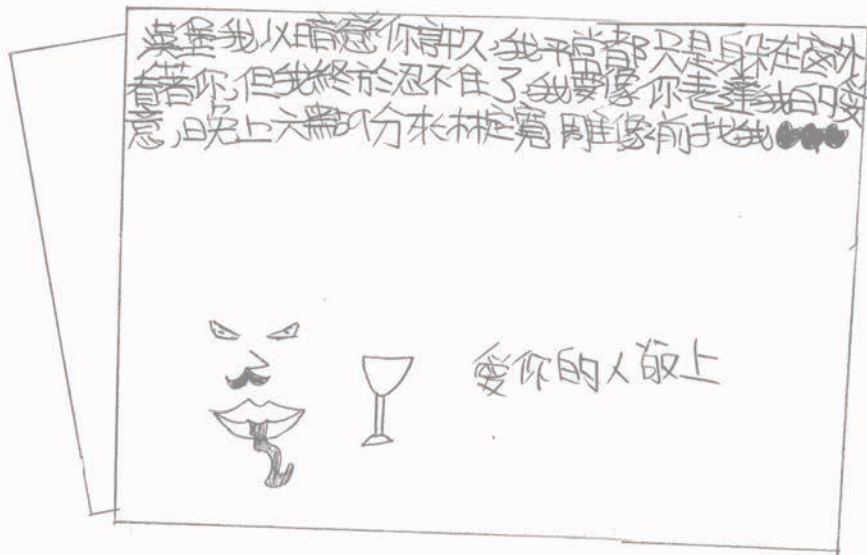 漢堡我以暗戀你許久,我平常都只是躲在窗外
看著你,但我終於忍不住了,我要像你表達我的愛
意,晚上六點 分來林 寬雕像前找我
愛你的人敬上